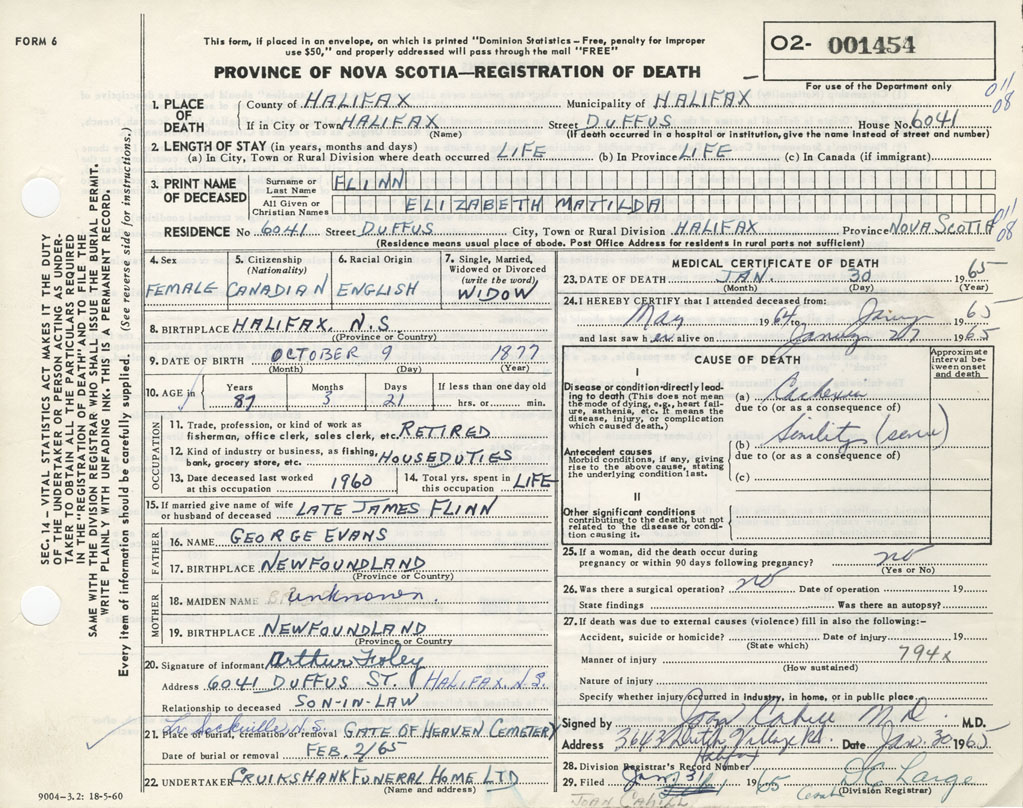 FORM 6
This form, if placed in an envelope, on which is printed "Dominion Statistics – Free, penalty for improper
use $50," and properly addressed will pass through the mail "FREE"
PROVINCE OF NOVA SCOTIA—REGISTRATION OF DEATH
O2- 001454
For use of the Department only
011
08
1. PLACE OF DEATH
County of HALIFAX Municipality of HALIFAX
If in City or Town HALIFAX Street DUFFUS House No. 6041
(Name) (If death occurred in a hospital or institution, give the name instead of street and number)
2. LENGTH OF STAY (in years, months and days)
(a) In City, Town or Rural Division where death occurred LIFE (b) In Province LIFE (c) In Canada (if immigrant)
3. PRINT NAME OF DECEASED
Surname or Last Name FLINN
All Given or Christian Names ELIZABETH MATILDA
RESIDENCE No 6041 Street DUFFUS City, Town or Rural Division HALIFAX Province NOVA SCOTIA
011
08
(Residence means usual place of abode. Post Office Address for residents in rural parts not sufficient)
4. Sex
FEMALE
5. Citizenship (Nationality)
CANADIAN
6. Racial Origin
ENGLISH
7. Single, Married, Widowed or Divorced (write the word)
WIDOW
8. BIRTHPLACE HALIFAX, N.S
(Province or Country)
9. DATE OF BIRTH OCTOBER 9 1877
(Month) (Day) (Year)
10. AGE in
Years Months Days If less than one day old
87 3 21 hrs. or min.
OCCUPATION
11. Trade, profession, or kind of work as
fisherman, office clerk, sales clerk, etc. RETIRED
12. Kind of industry or business, as fishing,
bank, grocery store, etc. HOUSEDUTIES
13. Date deceased last worked
at this occupation 1960
14. Total yrs. spent in
this occupation LIFE
15. If married give name of wife
or husband of deceased LATE JAMES FLINN
FATHER
16. NAME GEORGE EVANS
17. BIRTHPLACE NEWFOUNDLAND
(Province or Country)
MOTHER
18. MAIDEN NAME unknown.
19. BIRTHPLACE NEWFOUNDLAND
Province or Country
20. Signature of informant Arthur Foley
Address 6041 DUFFUS ST. HALIFAX, N.S.
Relationship to deceased SON-IN-LAW
Sackville N.S.
21. Place of burial, cremation or removal GATE OF HEAVEN CEMETERY
Date of burial or removal FEB. 2/65
22. UNDERTAKER CRUIKSHANK FUNERAL HOME LTD
(Name and address)
9004-3.2: 18-5-60
MEDICAL CERTIFICATE OF DEATH
23. DATE OF DEATH JAN. 30 1965
(Month) (Day) (Year)
24. I HEREBY CERTIFY that I attended deceased from:
May 1964 to Jany 1965
and last saw her alive on Jany 27 1965
CAUSE OF DEATH
Approximate interval between onset and death
I
Disease or condition directly leading
to death (This does not mean
the mode of dying, e.g., heart failure,
asthenia, etc. It means the
disease, injury, or complication
which caused death.)
(a) Cachexia
due to (or as a consequence of)
(b) Senility
due to (or as a consequence of)
(c)
Antecedent causes
Morbid conditions, if any, giving
rise to the above cause, stating
the underlying condition last.
II
Other significant conditions
contributing to the death, but not
related to the disease or condition
causing it.
25. If a woman, did the death occur during
pregnancy or within 90 days following pregnancy? no
(Yes or No)
26. Was there a surgical operation? no Date of operation 19
State findings Was there an autopsy?
27. If death was due to external causes (violence) fill in also the following:–
Accident, suicide or homicide? Date of injury 19
(State which)
794x
Manner of injury
(How sustained)
Nature of injury
Specify whether injury occurred in industry, in home, or in public place
Signed by Joan Cahill M.D. M.D.
Address 3643 Dutch Village Rd. Date Jan. 30 1965
Halifax
28. Division Registrar's Record Number
29. Filed Jan. 31 1965
Large
(Division Registrar)
JOAN CAHILL
SEC. 14 – VITAL STATISTICS ACT MAKES IT THE DUTY
OF THE UNDERTAKER OR PERSON ACTING AS UNDERTAKER
TO OBTAIN ALL THE PARTICULARS REQUIRED
IN THE "REGISTRATION OF DEATH" AND TO FILE THE
SAME WITH THE DIVISION REGISTRAR WHO SHALL ISSUE THE BURIAL PERMIT.
WRITE PLAINLY WITH UNFADING INK. THIS IS A PERMANENT RECORD.
Every item of information should be carefully supplied. (See reverse side for instructions.)